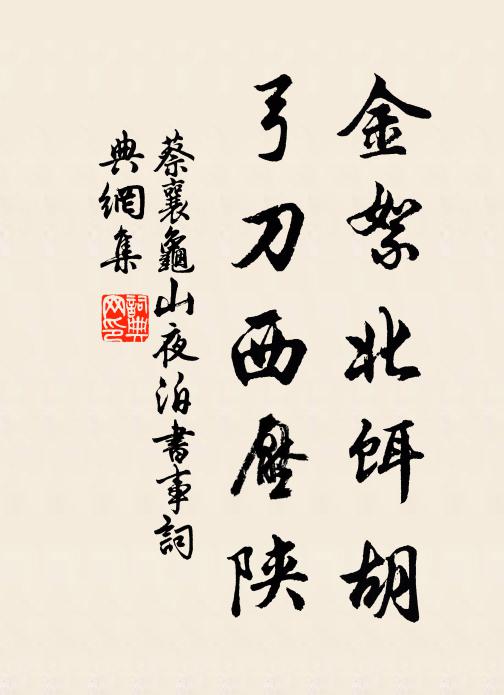 金絮北餌胡
弓刀西壓陝
蔡襄龜山夜泊書事詞
典網集
詞典網印